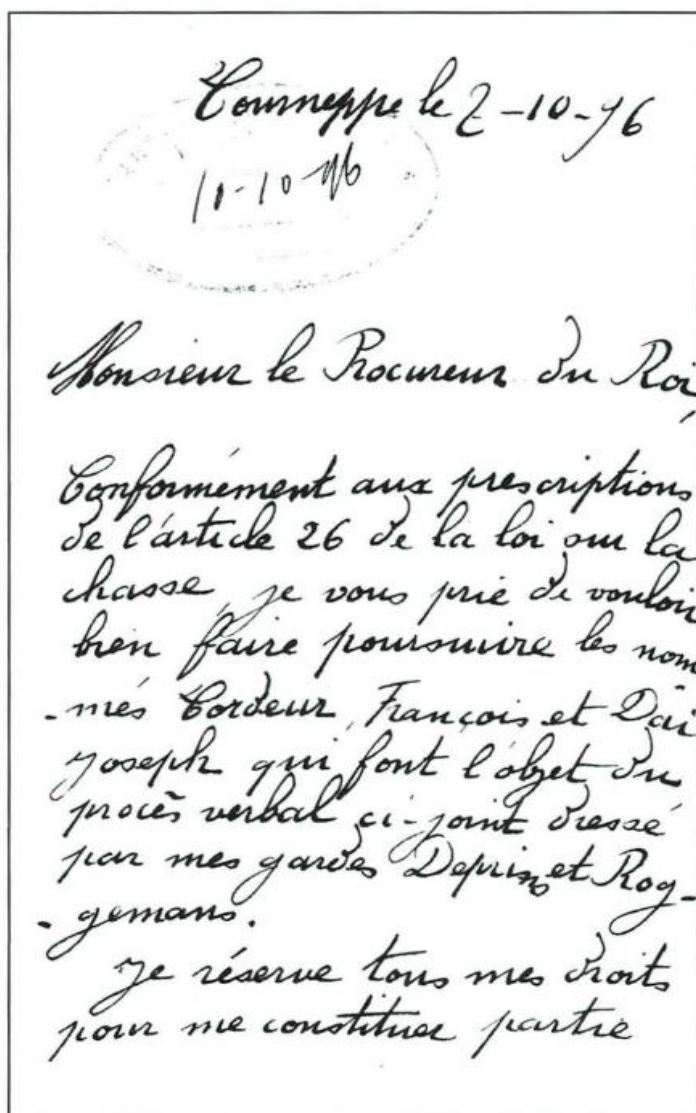 Tourneppe le 2-10-96
11-10-96
Monsieur le Procureur du Roi,
Conformément aux prescriptions
de l'article 26 de la loi sur la
chasse, je vous prie de vouloir
bien faire poursuivre les nom
-més Cordeur, François et Dai
Joseph qui font l'objet du
procès verbal ci-joint dressé
par mes gardes Deprins et Rog-
-gemans.
Je réserve tous mes droits
pour me constituer partie